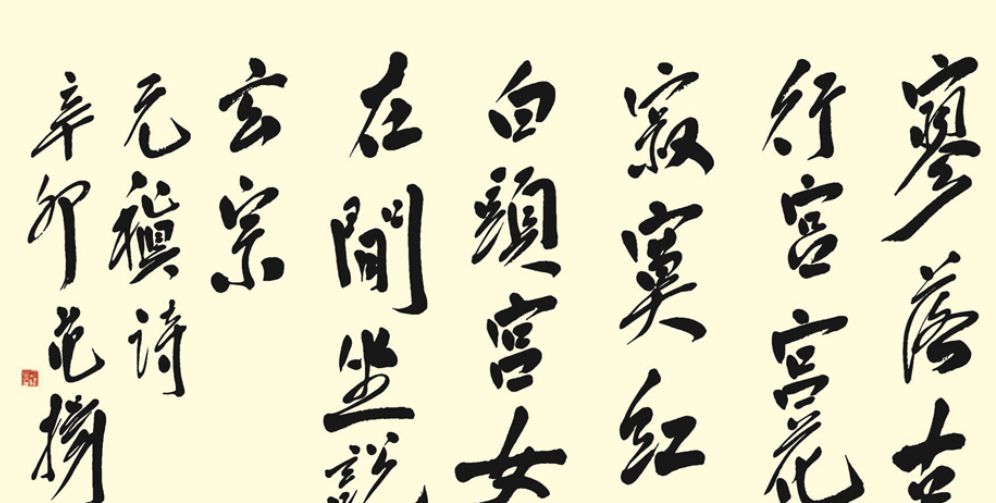 寥落古
行宫宫花
寂寞红
白頭宫女
在閒坐説
玄宗
元稹诗
辛卯范擀